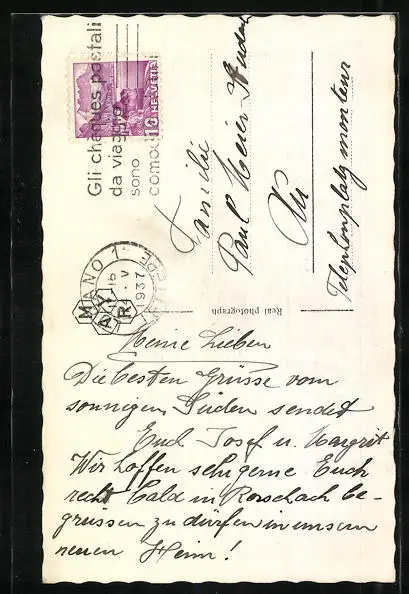 Gli chèques postali
da viaggio
sono
comodi
HELVETIA
10
1937
Familie
Paul Meier
Au
Telephonplatzmonteur
Real photograph
Meine Lieben
Die besten Grüsse vom
sonnigen Süden sendet
Euch Josef u. Margrit
Wir hoffen sehr gerne Euch
recht bald in Rorschach be-
grüssen zu dürfen in unserm
neuen Heim!